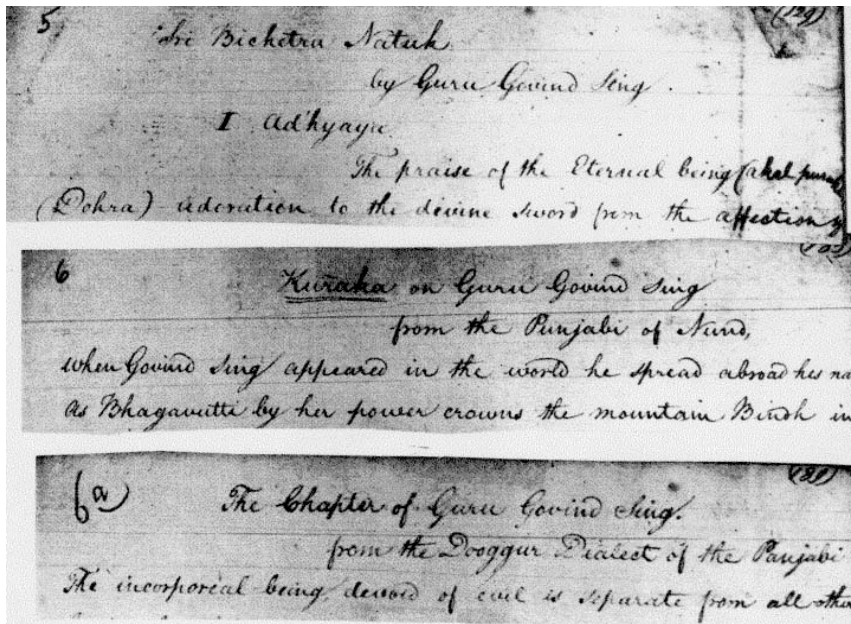 5
(129)
Sri Bichetru Natuk
by Guru Govind Sing.
I Ad'hyaya
The praise of the Eternal being (akal
(Dohra) adoration to the divine sword from the affection
6
Kuraka on Guru Govind Sing
from the Punjabi of Nund,
When Govind Sing appeared in the world he spread abroad his na
As Bhagavutti by her power crowns the mountain Bindh in
6a
The Chapter of Guru Govind Sing.
from the Dooggur Dialect of the Panjabi
The incorporeal being, devoid of evil is separate from all other